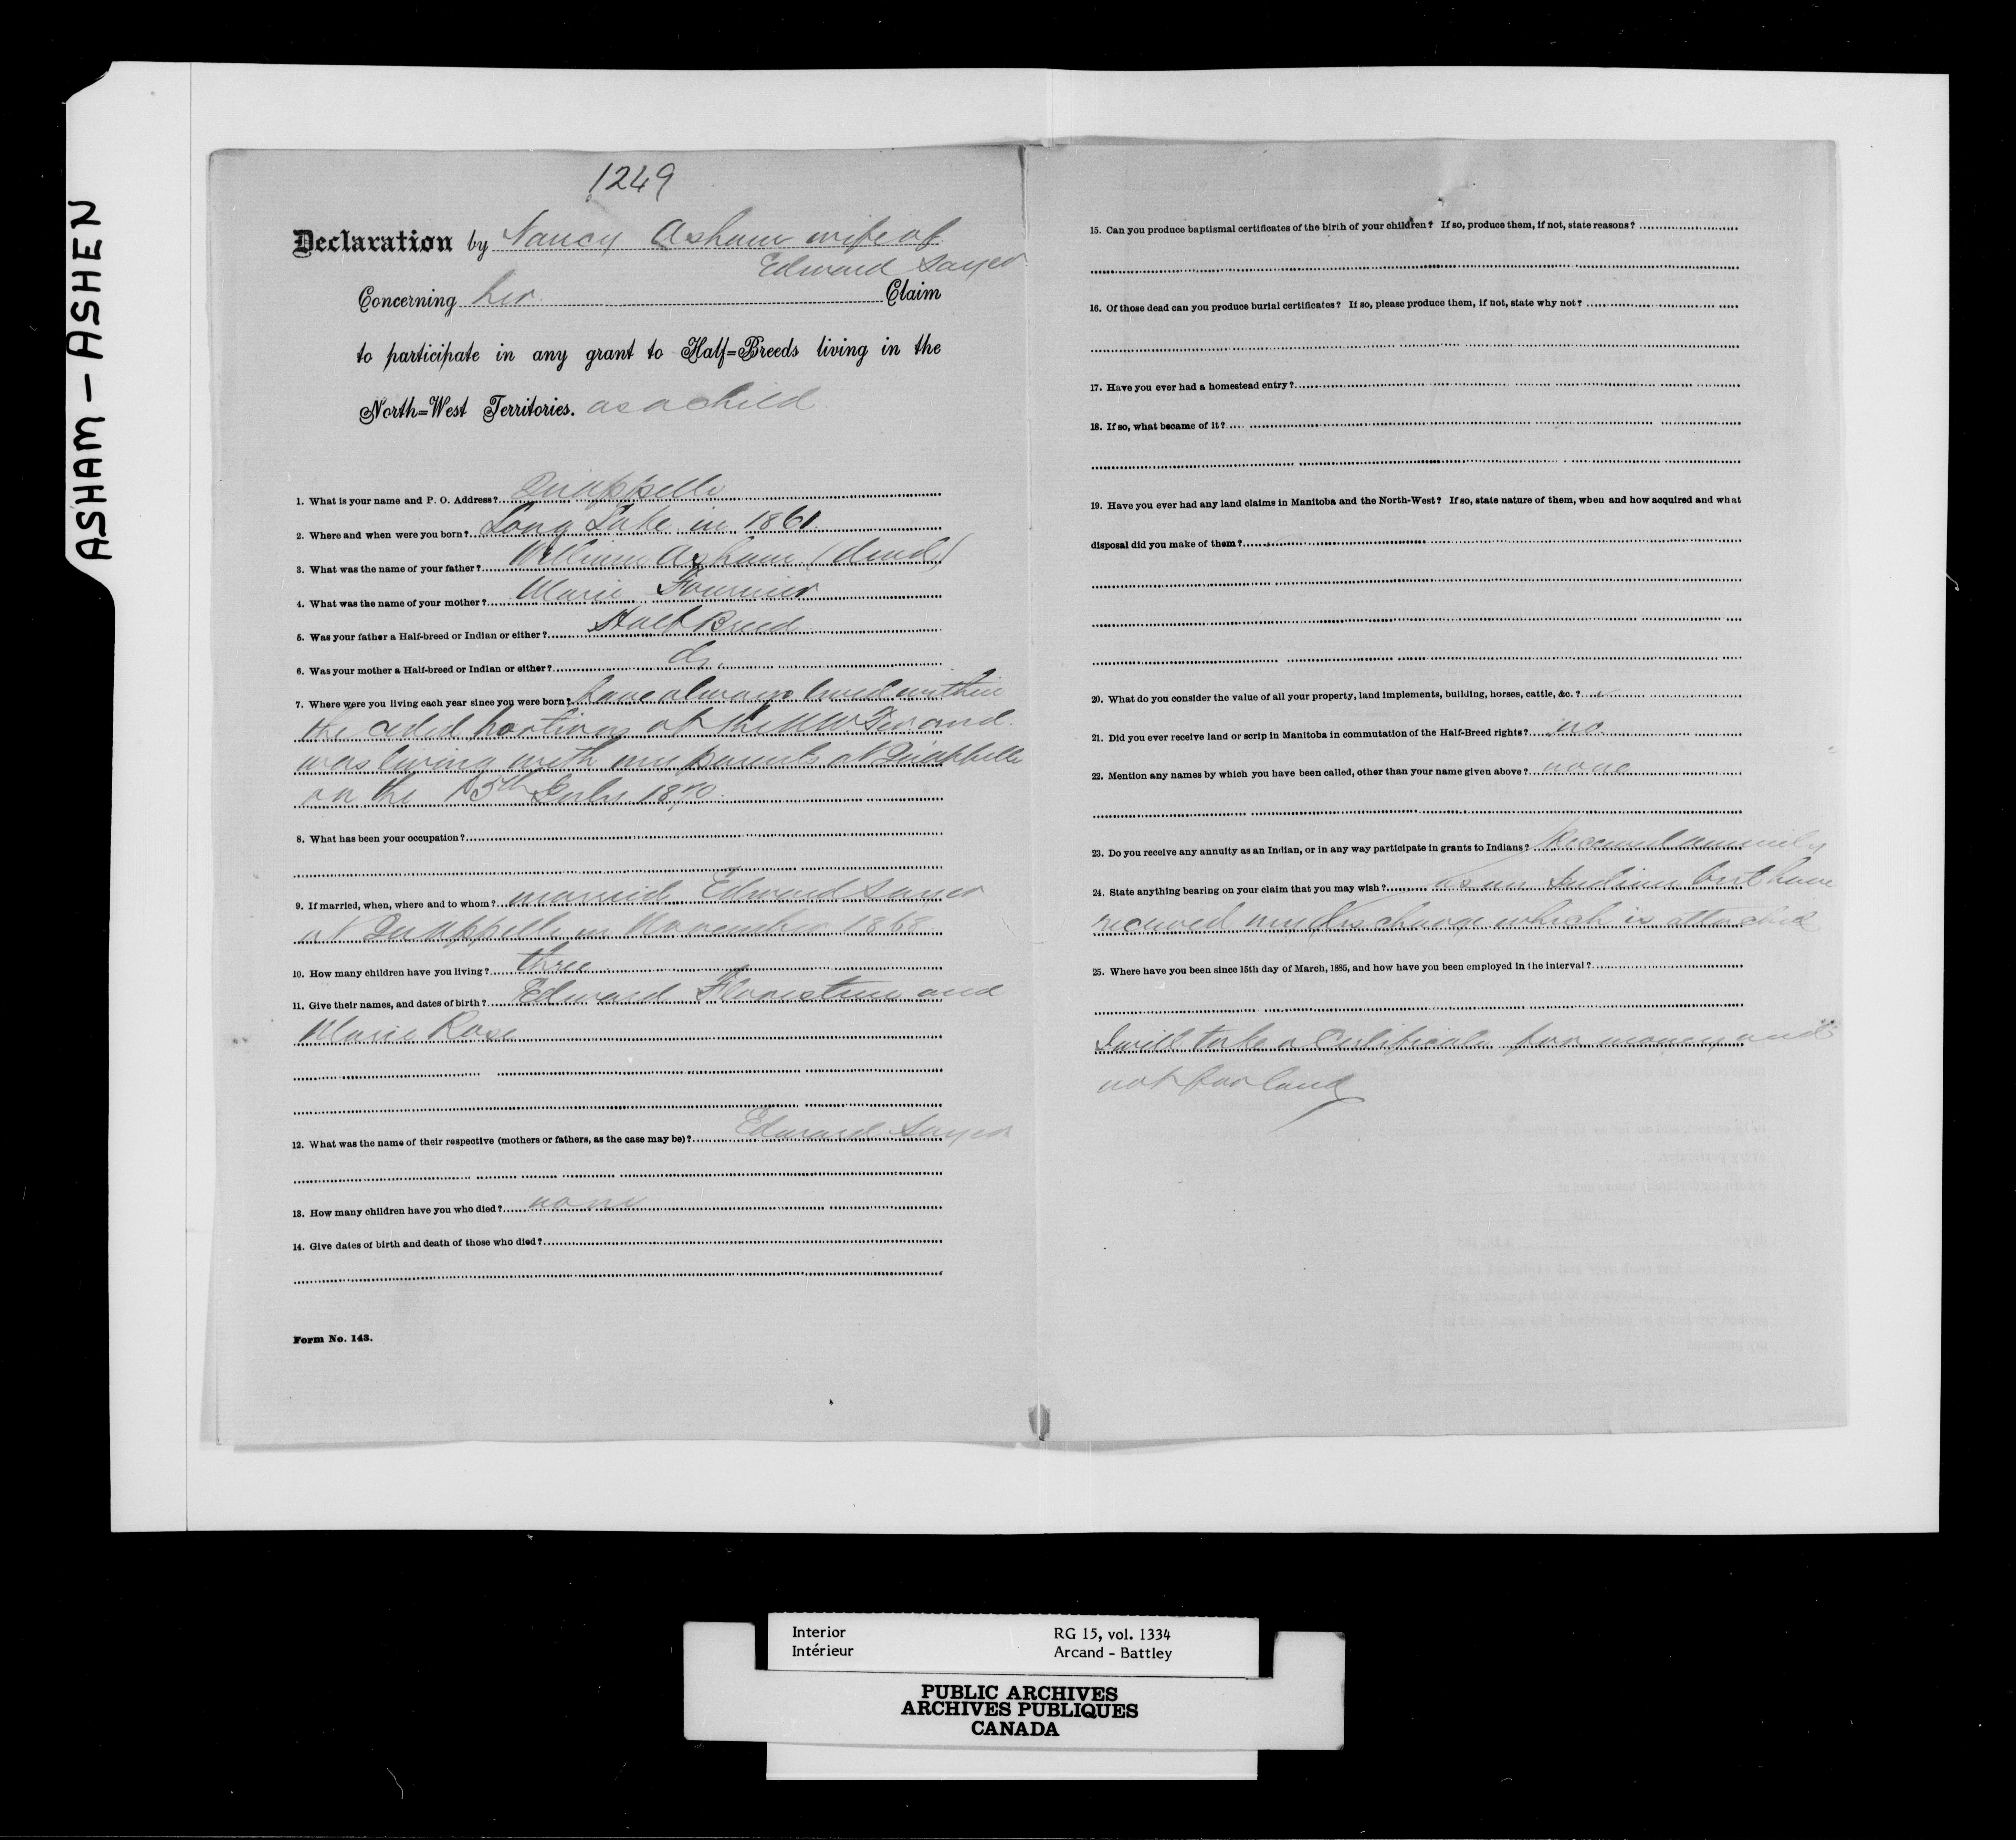 ASHAM – ASHEN
1249
Declaration by Nancy Asham wife of
Edward Sayer
Concerning her Claim
to participate in any grant to Half=Breeds living in the
North=West Territories. as a child
1. What is your name and P. O. Address? Qu'appelle
2. Where and when were you born? Long Lake in 1861.
3. What was the name of your father? William Asham (dead)
4. What was the name of your mother? Marie Fournier
5. Was your father a Half-breed or Indian or either? Half Breed
6. Was your mother a Half-breed or Indian or either? do.
7. Where were you living each year since you were born? have always lived within
the ceded portions of the NW Ter and
was living with my parents at Qu'appelle
on the 15th July 1870.
8. What has been your occupation?
9. If married, when, where and to whom? married Edward Sayer
at Qu'appelle in November 1868
10. How many children have you living? three
11. Give their names, and dates of birth? Edward Florestine and
Marie Rose
12. What was the name of their respective (mothers or fathers, as the case may be)? Edward Sayer
13. How many children have you who died? none
14. Give dates of birth and death of those who died?
Form No. 143.
15. Can you produce baptismal certificates of the birth of your children? If so, produce them, if not, state reasons?
16. Of those dead can you produce burial certificates? If so, please produce them, if not, state why not?
17. Have you ever had a homestead entry?
18. If so, what became of it?
19. Have you ever had any land claims in Manitoba and the North-West? If so, state nature of them, when and how acquired and what
disposal did you make of them?
20. What do you consider the value of all your property, land implements, building, horses, cattle, &c. ?
21. Did you ever receive land or scrip in Manitoba in commutation of the Half-Breed rights? no
22. Mention any names by which you have been called, other than your name given above? none
23. Do you receive any annuity as an Indian, or in any way participate in grants to Indians? Received annuity
24. State anything bearing on your claim that you may wish? as an Indian but have
received my discharge which is attached
25. Where have you been since 15th day of March, 1885, and how have you been employed in the interval?
I will take a Certificate for money and
not for land
Interior RG 15, vol. 1334
Intérieur Arcand - Battley
PUBLIC ARCHIVES
ARCHIVES PUBLIQUES
CANADA